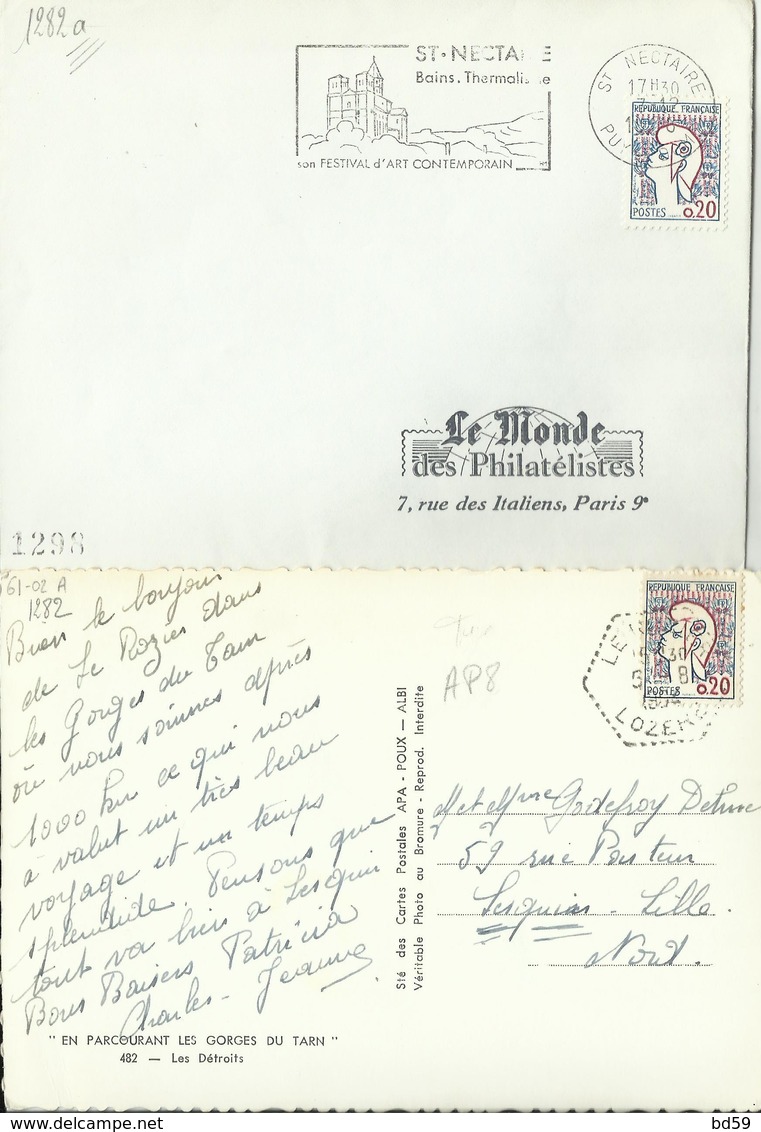 1282a
ST-NECTAIRE
Bains. Thermalisme
son FESTIVAL d'ART CONTEMPORAIN
ST NECTAIRE
17H30
PUY
REPUBLIQUE FRANÇAISE
POSTES 0,20
Le Monde
des Philatélistes
7, rue des Italiens, Paris 9e
1298
61-02 A
1282
Bien le bonjour
de Le Rozier dans
les Gorges du Tarn
où nous sommes après
1000 km ce qui nous
à valut un très beau
voyage et un temps
splendide. Pensons que
tout va bien à Lesquin
Bons Baisers Patricia
Charles - Jeanne
" EN PARCOURANT LES GORGES DU TARN "
482 — Les Détroits
Sté des Cartes Postales APA - POUX — ALBI
Véritable Photo au Bromure - Reprod. Interdite
AP8
REPUBLIQUE FRANÇAISE
POSTES 0,20
LOZERE
M et Mme Godefroy
59 rue Pasteur
Lesquin - Lille
Nord.
bd59